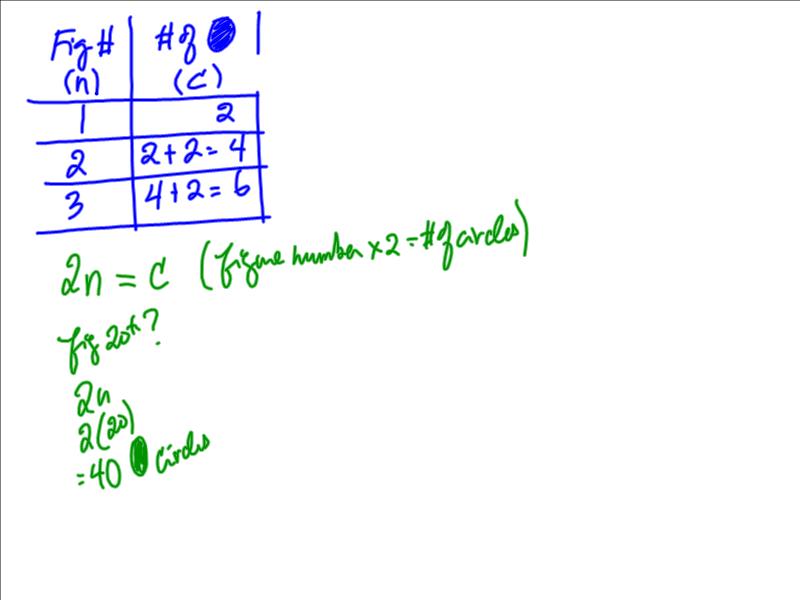 Fig # # of
(n) (C)
1 2
2 2+2=4
3 4+2=6
2n = C (figure number ×2 = # of circles)
fig 20th?
2n
2(20)
=40 circles